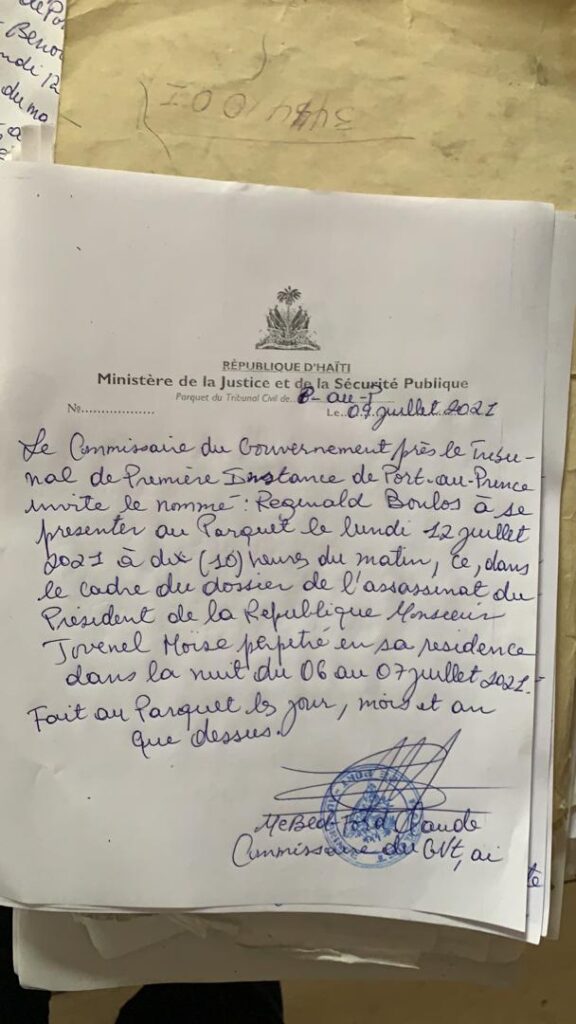 Benoi
du ma
RÉPUBLIQUE D'HAÏTI
Ministère de la Justice et de la Sécurité Publique
Parquet du Tribunal Civil de P-au-P
No.................. Le..09 juillet 2021
Le Commissaire du Gouvernement près le Tribu-
nal de Première Instance de Port-au-Prince
invite le nommé: Reginald Boulos à se
présenter au Parquet le lundi 12 juillet
2021 à dix (10) heures du matin, ce, dans
le cadre du dossier de l'assassinat du
Président de la République Monsieur
Jovenel Moïse perpétré en sa residence
dans la nuit du 06 au 07 juillet 2021.
Fait au Parquet les jour, mois et an
que dessus.
Me Bed-Ford Claude
Commissaire du GVt, ai